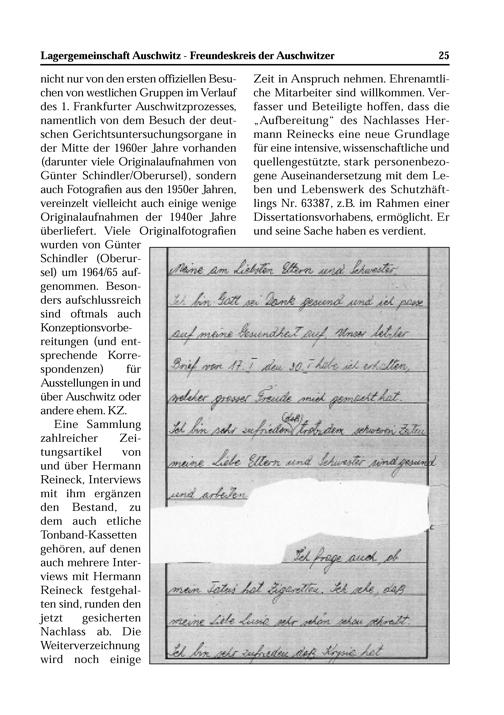 Lagergemeinschaft Auschwitz - Freundeskreis der Auschwitzer 25
nicht nur von den ersten offiziellen Besu-
chen von westlichen Gruppen im Verlauf
des 1. Frankfurter Auschwitzprozesses,
namentlich von dem Besuch der deut-
schen Gerichtsuntersuchungsorgane in
der Mitte der 1960er Jahre vorhanden
(darunter viele Originalaufnahmen von
Günter Schindler/Oberursel), sondern
auch Fotografien aus den 1950er Jahren,
vereinzelt vielleicht auch einige wenige
Originalaufnahmen der 1940er Jahre
überliefert. Viele Originalfotografien
wurden von Günter
Schindler (Oberur-
sel) um 1964/65 auf-
genommen. Beson-
ders aufschlussreich
sind oftmals auch
Konzeptionsvorbe-
reitungen (und ent-
sprechende Korre-
spondenzen) für
Ausstellungen in und
über Auschwitz oder
andere ehem. KZ.
Eine Sammlung
zahlreicher Zei-
tungsartikel von
und über Hermann
Reineck, Interviews
mit ihm ergänzen
den Bestand, zu
dem auch etliche
Tonband-Kassetten
gehören, auf denen
auch mehrere Inter-
views mit Hermann
Reineck festgehal-
ten sind, runden den
jetzt gesicherten
Nachlass ab. Die
Weiterverzeichnung
wird noch einige
Zeit in Anspruch nehmen. Ehrenamtli-
che Mitarbeiter sind willkommen. Ver-
fasser und Beteiligte hoffen, dass die
„Aufbereitung" des Nachlasses Her-
mann Reinecks eine neue Grundlage
für eine intensive, wissenschaftliche und
quellengestützte, stark personenbezo-
gene Auseinandersetzung mit dem Le-
ben und Lebenswerk des Schutzhäft-
lings Nr. 63387, z.B. im Rahmen einer
Dissertationsvorhabens, ermöglicht. Er
und seine Sache haben es verdient.
Meine am Liebsten Eltern und Schwester,
Ich bin Gott sei Dank gesund und ich passe
auf meine Gesundheit auf. Unser letzter
Brief von 17. I den 30. I habe ich erhalten,
welcher grosser Freude mich gemacht hat.
Ich bin sehr zufrieden (daß) trotzdem schweren Zeiten
meine Liebe Eltern und Schwester sind gesund
und arbeiten
Ich frage auch ob
mein Tatuś hat Zigaretten. Ich sehe, daß
meine Liebe Lusie sehr schön schon schreibt.
Ich bin sehr zufrieden daß Krysie hat